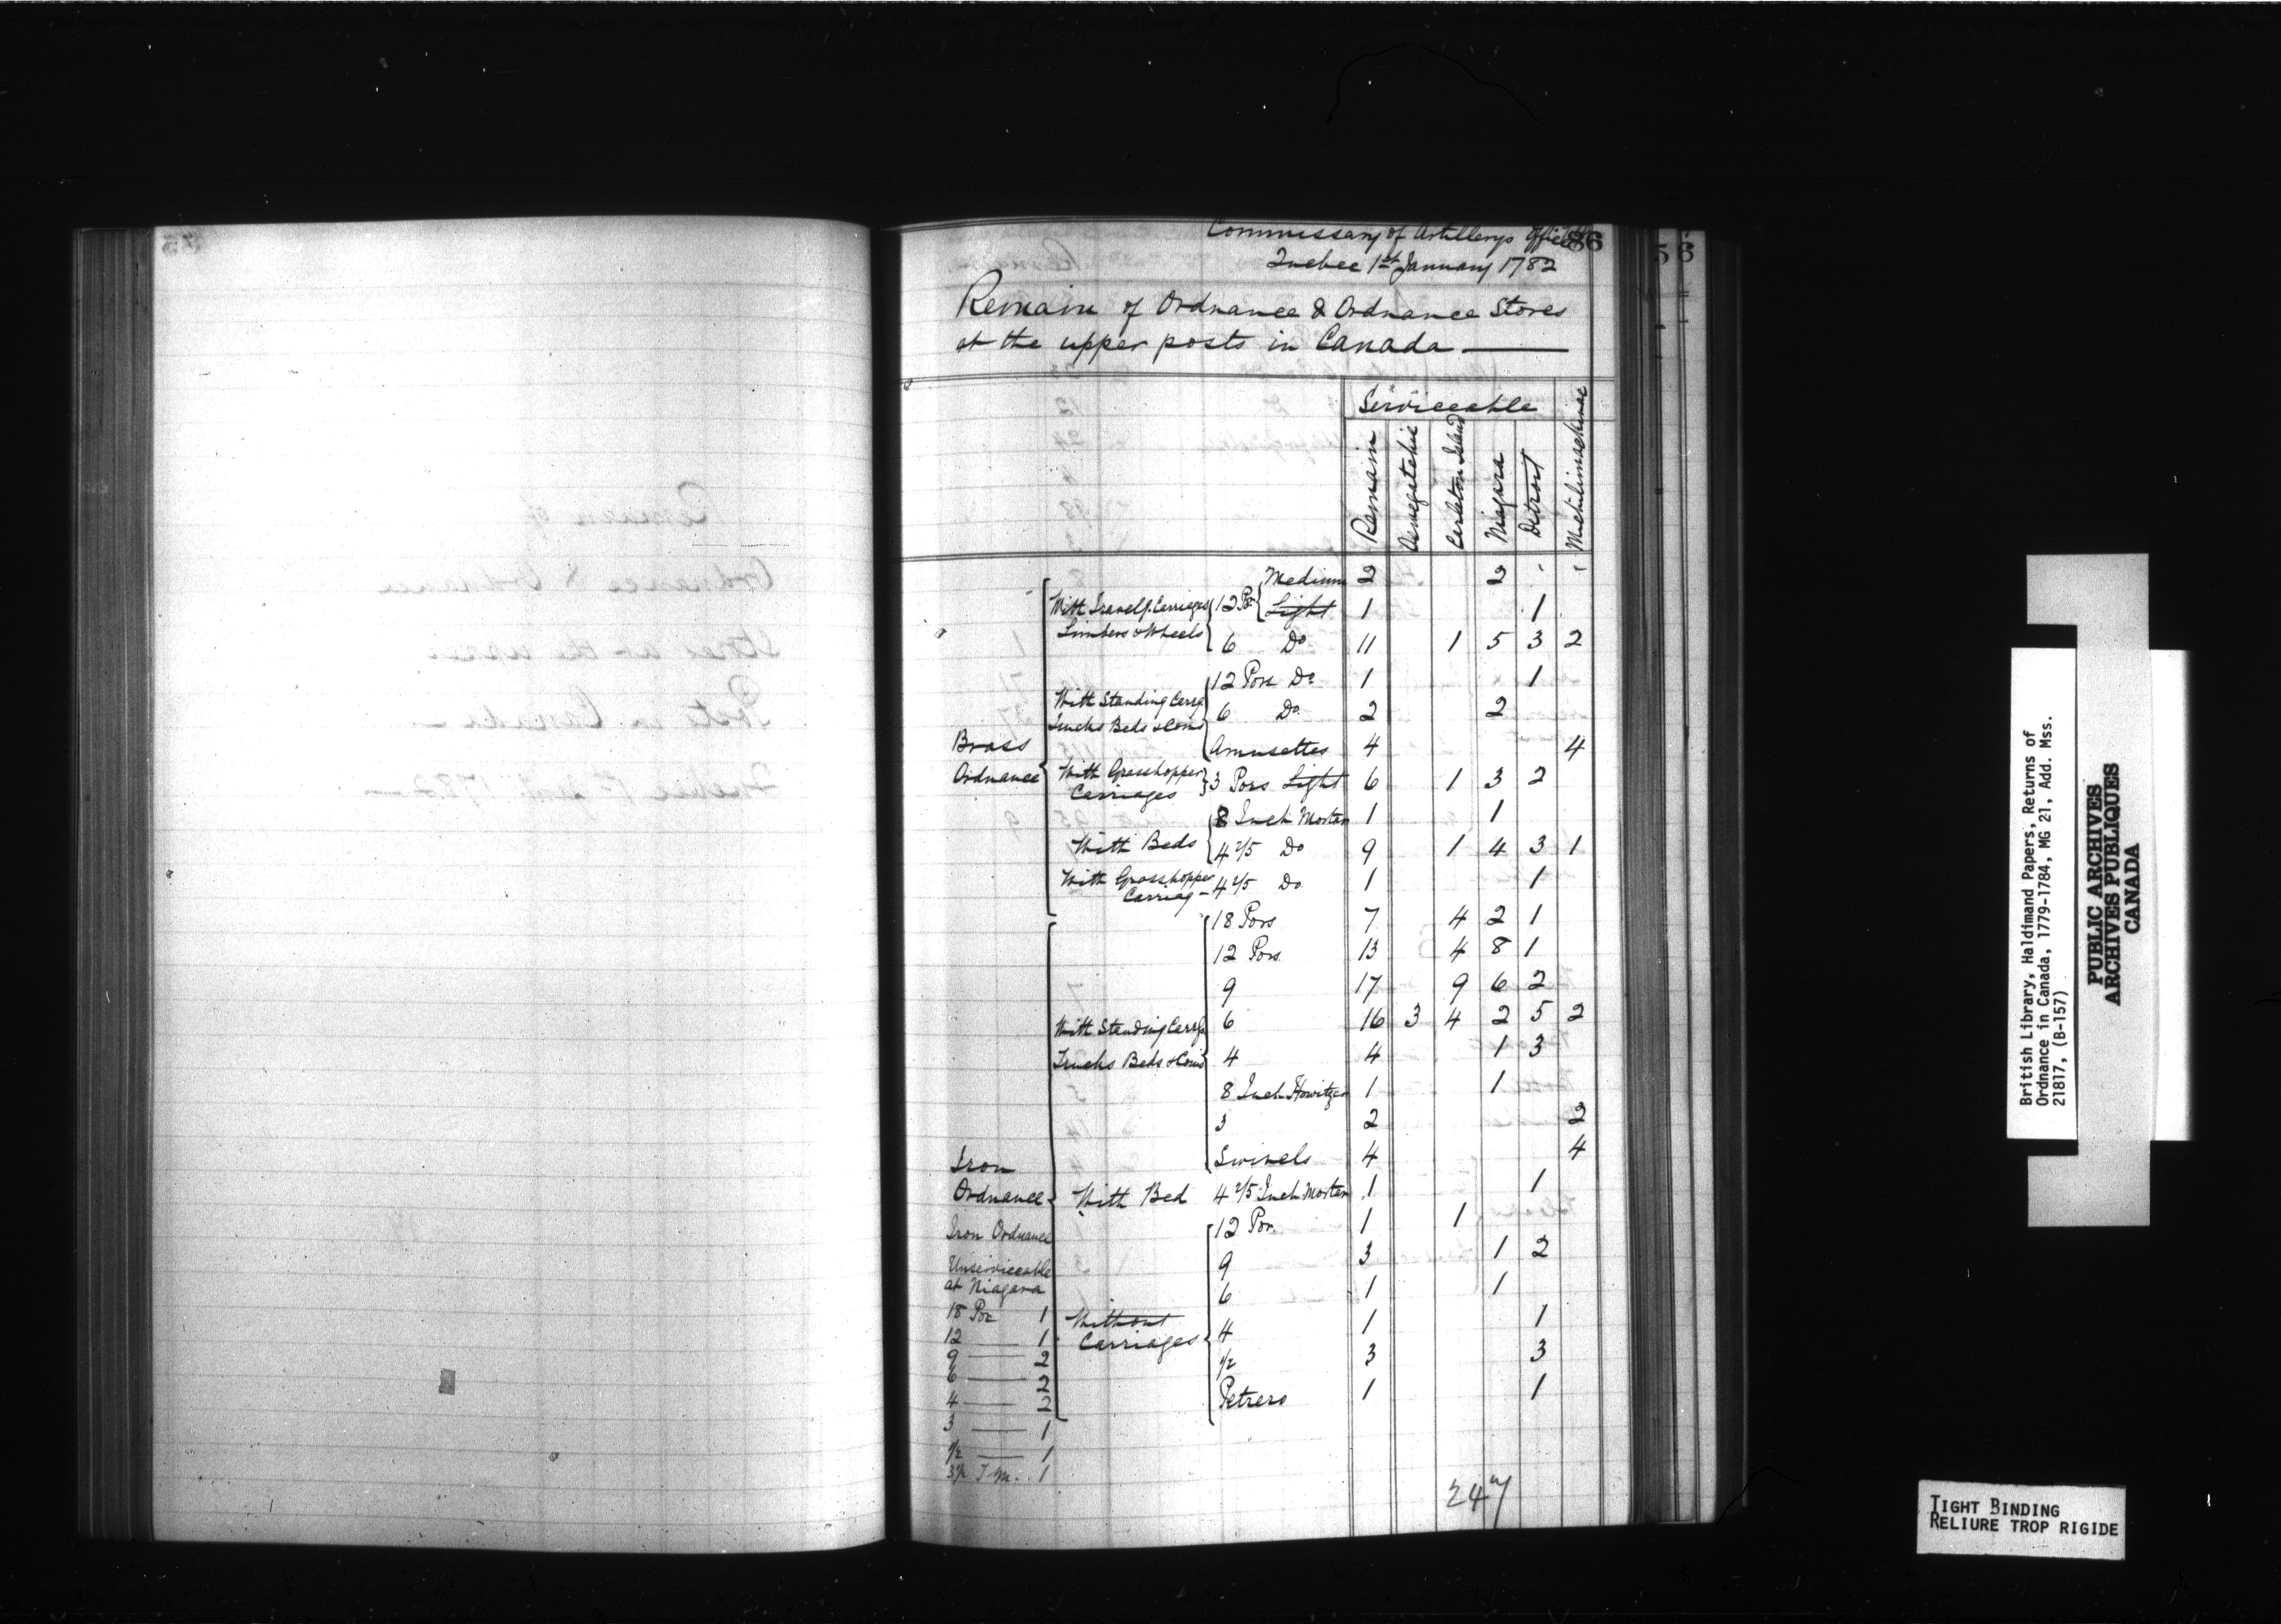 Commissary of Artillerys Office
86
Quebec 1st January 1782
Remain of Ordnance & Ordnance Stores
at the upper posts in Canada
Serviceable
Remain
Oswegatchie
Carleton Island
Niagara
Detroit
Michilimackinac
Brass
Ordnance
With Travelg. Carriages
Limbers & Wheels
12 Por Medium 2 2
Light 1 1
6 Do 11 1 5 3 2
With Standing Carrg.
Trucks Beds & Coins
12 Pors Do 1 1
6 Do 2 2
Amusettes 4 4
With Grasshopper
Carriages
3 Pors Light 6 1 3 2
With Beds
8 Inch Mortar 1 1
4 2/5 Do 9 1 4 3 1
With Grasshopper
Carriag - 4 2/5 Do 1 1
Iron
Ordnance
With Standing Carrg.
Trucks Beds & Coins
18 Pors 7 4 2 1
12 Pors 13 4 8 1
9 17 9 6 2
6 16 3 4 2 5 2
4 4 1 3
8 Inch Howitzer 1 1
3 2 2
Swivels 4 4
With Bed 4 2/5 Inch Mortar 1 1
Without
Carriages
12 Por 1 1
9 3 1 2
6 1 1
4 1 1
1/2 3 3
Petrero 1 1
Iron Ordnance
Unserviceable
at Niagara
18 Por 1
12 — 1
9 — 2
6 — 2
4 — 2
3 — 1
1/2 — 1
1
247
British Library, Haldimand Papers, Returns of
Ordnance in Canada, 1779-1784, MG 21, Add. Mss.
21817, (B-157)
PUBLIC ARCHIVES
ARCHIVES PUBLIQUES
CANADA
TIGHT BINDING
RELIURE TROP RIGIDE